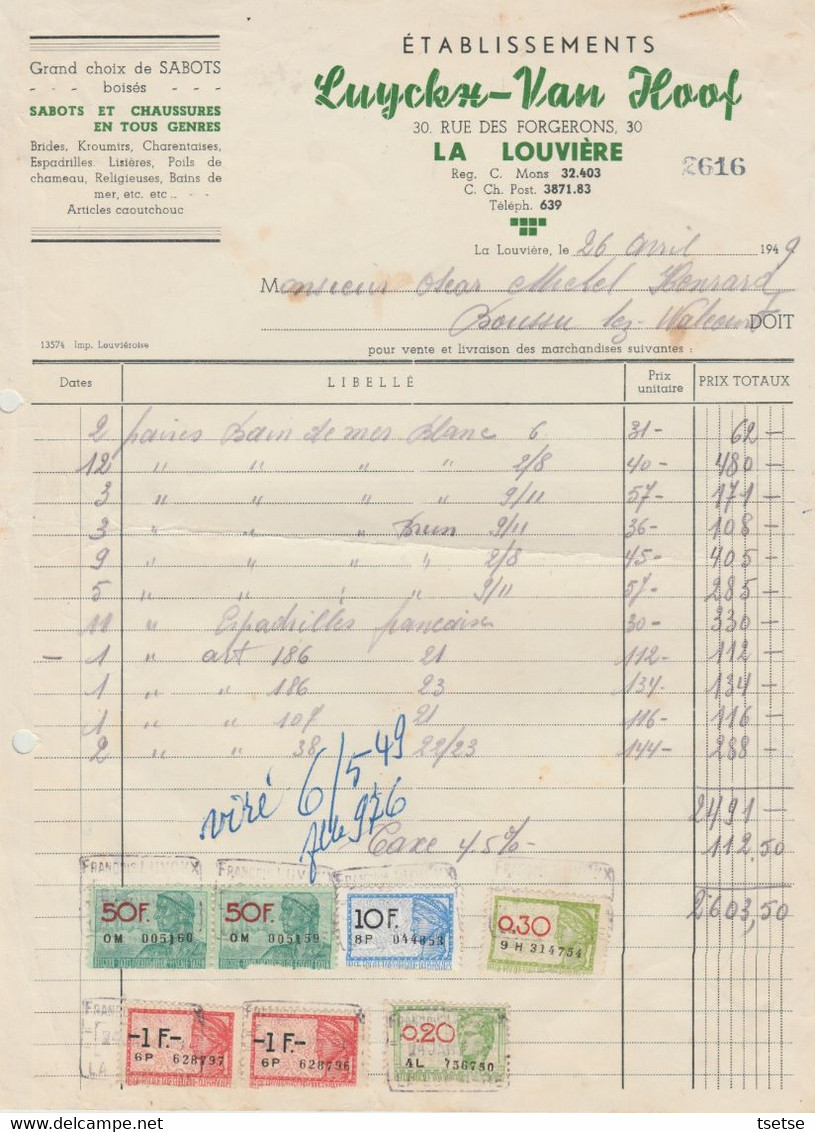 Grand choix de SABOTS
- - - boisés - - -
SABOTS ET CHAUSSURES
EN TOUS GENRES
Brides, Kroumirs, Charentaises,
Espadrilles. Lisières, Poils de
chameau, Religieuses, Bains de
mer, etc. etc .. - -
Articles caoutchouc
ÉTABLISSEMENTS
Luyckx-Van Hoof
30. RUE DES FORGERONS, 30
LA LOUVIÈRE
Reg. C. Mons 32.403
C. Ch. Post. 3871.83
Téléph. 639
2616
La Louvière, le 26 avril 1949
Monsieur Oscar Michel Honrard
Boussu lez Walcourt DOIT
13574 Imp. Louviéroise
pour vente et livraison des marchandises suivantes :
Dates LIBELLÉ Prix unitaire PRIX TOTAUX
2 paires Bain de mer Blanc 6 31- 62-
12 " " " " 2/8 40- 480-
3 " " " " 9/11 57- 171-
3 " " " Brun 9/11 36- 108-
9 " " " " 2/8 45- 405-
5 " " " " 9/11 57- 285-
11 " Espadrilles francaise 30- 330-
- 1 " art 186 21 112- 112-
1 " " 186 23 134- 134-
1 " " 107 21 116- 116-
2 " " 38 22/23 144- 288-
viré 6/5-49
976
2491-
Taxe 4.5% 112,50
2603,50
FRANÇOIS LUYCKX
50F. 50F. 10F. 0.30
OM 005160 OM 005159 8P 044853 9H 314754
-1F.- -1F.- 0.20
6P 628797 6P 628796 4L 756750
tsetse